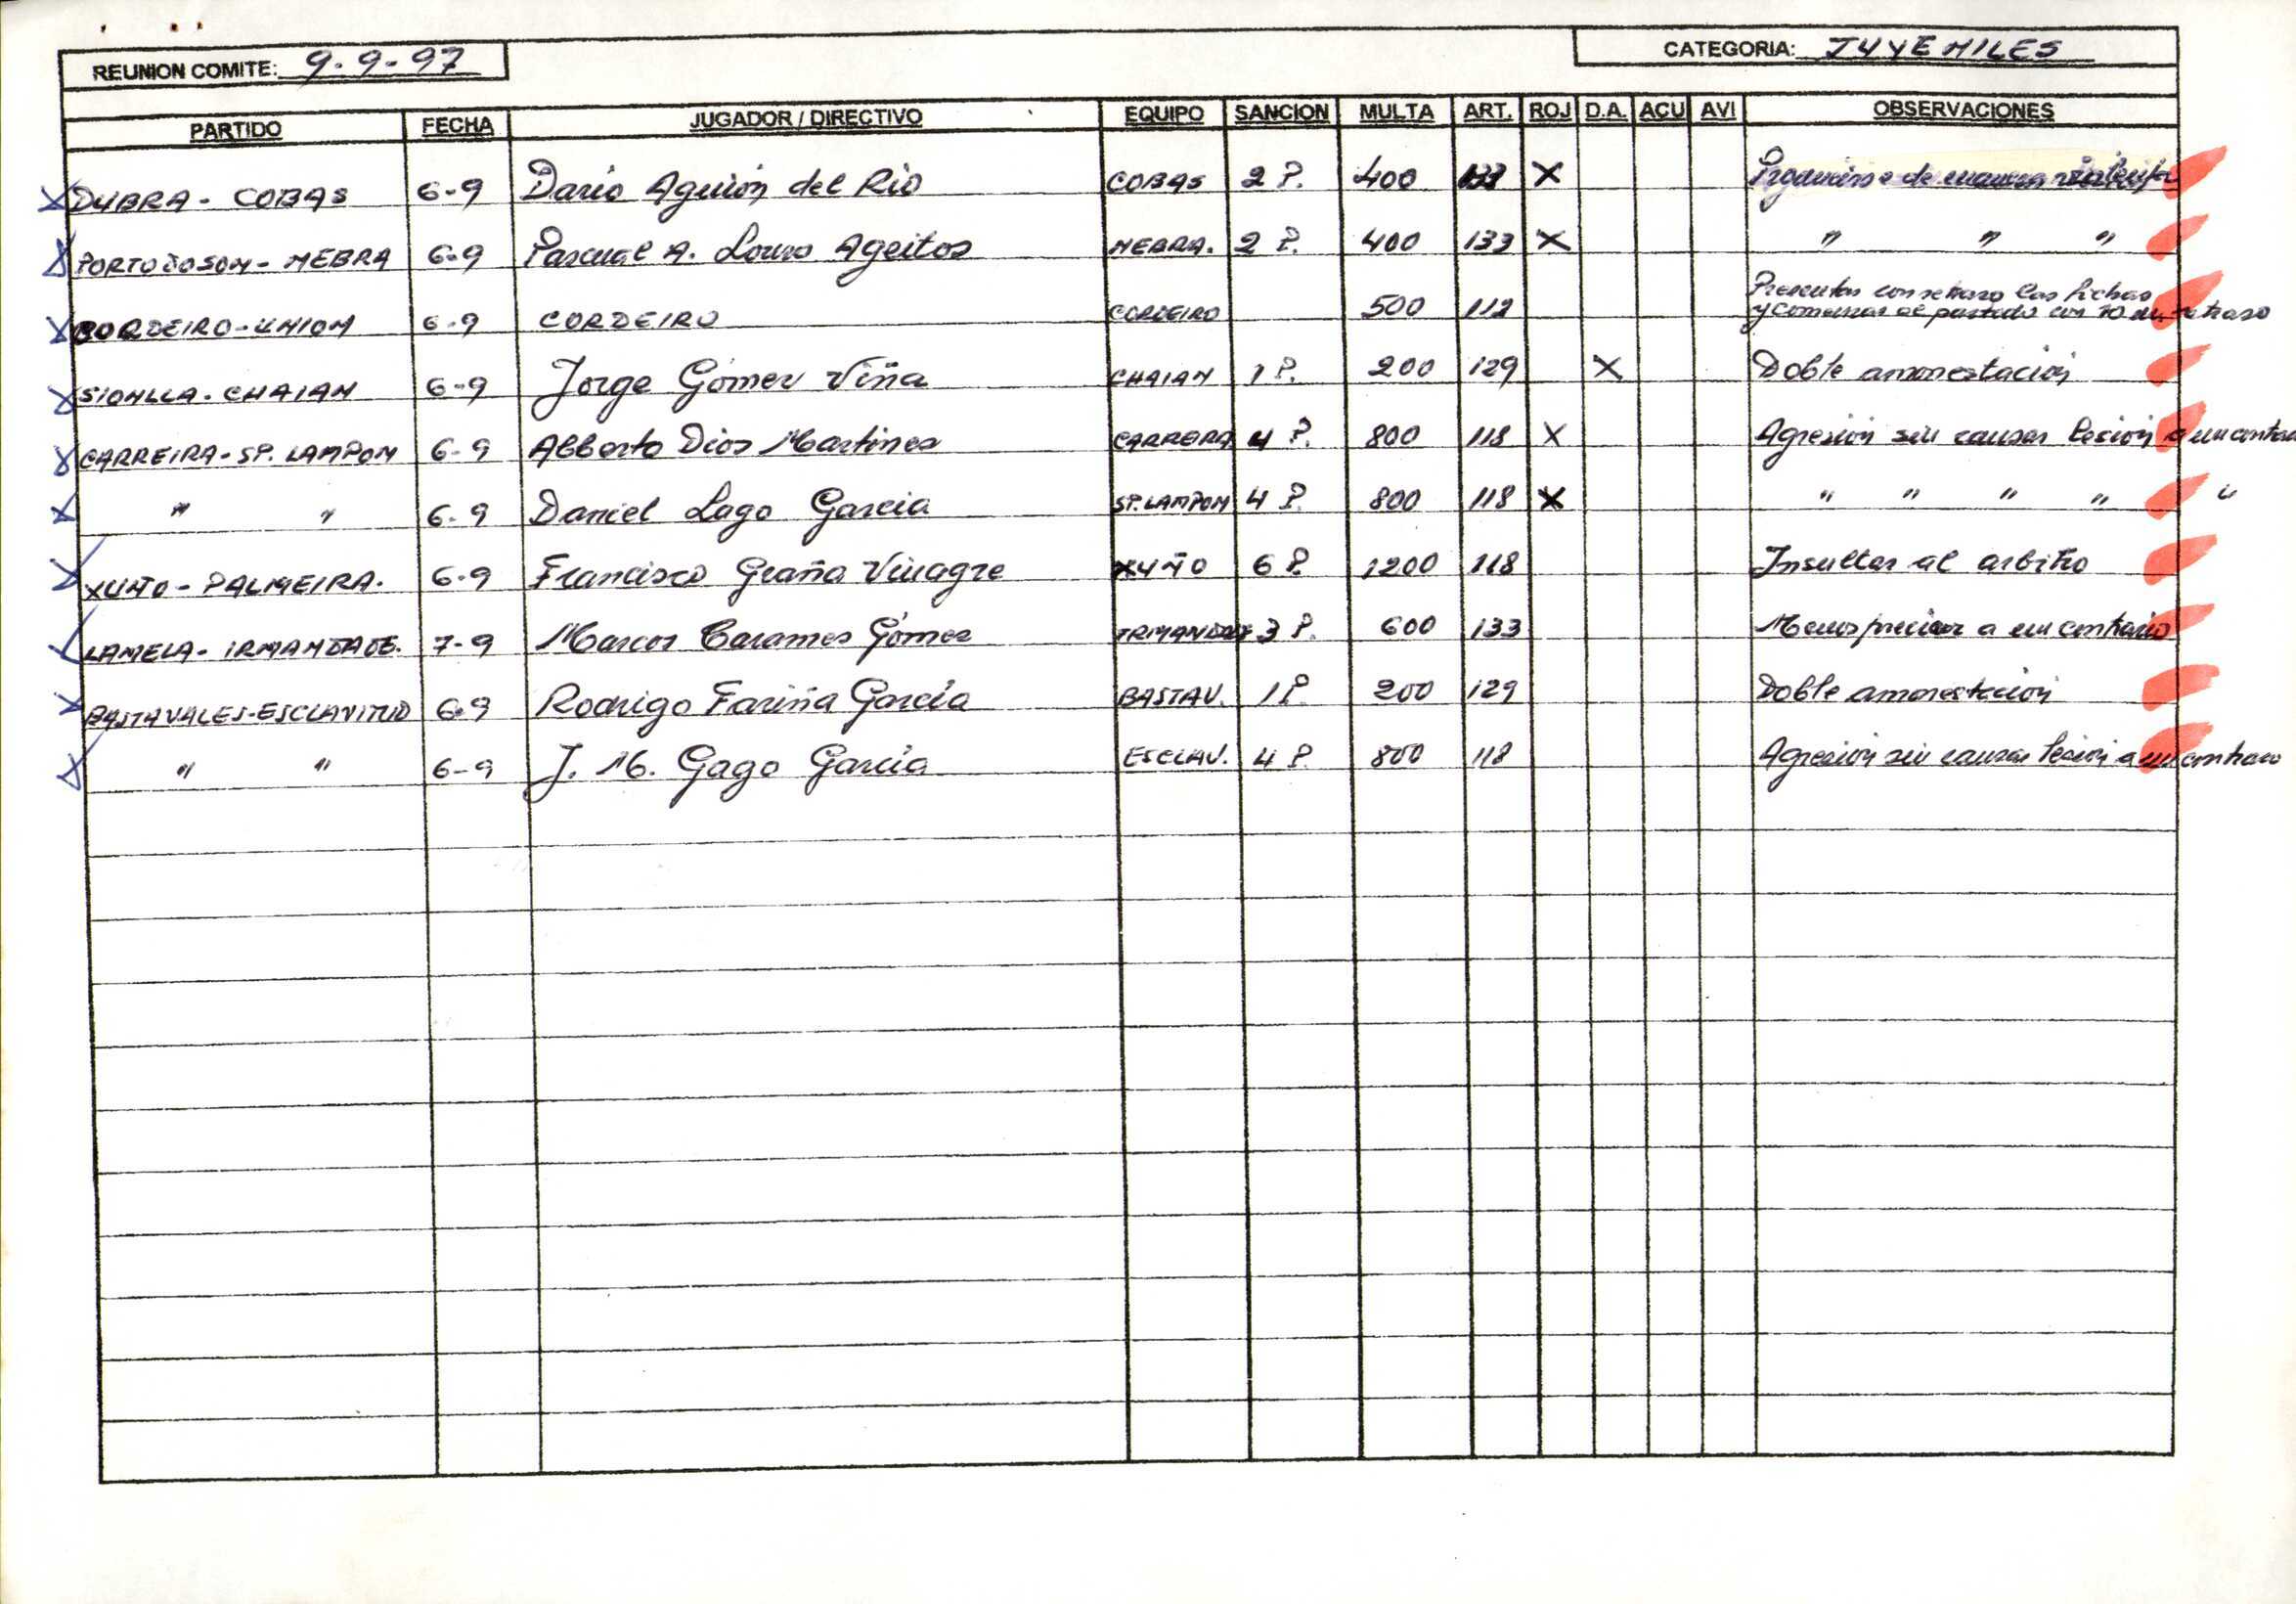 REUNION COMITE: 9-9-97 CATEGORIA: JUVENILES
PARTIDO FECHA JUGADOR / DIRECTIVO EQUIPO SANCION MULTA ART. ROJ D.A. ACU AVI OBSERVACIONES
X DUBRA - COBAS 6-9 Dario Aguión del Rio COBAS 2 P. 400 133 X de manera
X PORTODOSON - NEBRA 6-9 Pascual A. Louro Ageitos NEBRA. 2 P. 400 133 X " " "
Presentar con retraso las fichas
X CORDEIRO - UNION 6-9 CORDEIRO CORDEIRO 500 112 y comenzar el partido con 10 retraso
X SIONLLA - CHAIAN 6-9 Jorge Gómez Viña CHAIAN 1 P. 200 129 X Doble amonestación
X CARREIRA - SP. LAMPON 6-9 Alberto Dios Martinez CARREIRA 4 P. 800 118 X Agresión sin causar lesión a un
X " " 6-9 Daniel Lago Garcia SP. LAMPON 4 P. 800 118 X " " " " "
X XUÑO - PALMEIRA. 6-9 Francisco Graña Vinagre XUÑO 6 P. 1200 118 Insultar al arbitro
LAMELA - IRMANDADE. 7-9 Marcos Carames Gómez 3 P. 600 133 Menospreciar a un contrario
X BASTAVALES - ESCLAVITUD 6-9 Rodrigo Fariña García BASTAV. 1 P. 200 129 Doble amonestación
X " " 6-9 J. M. Gago García ESCLAV. 4 P. 800 118 Agresión sin causar lesión a un contrario